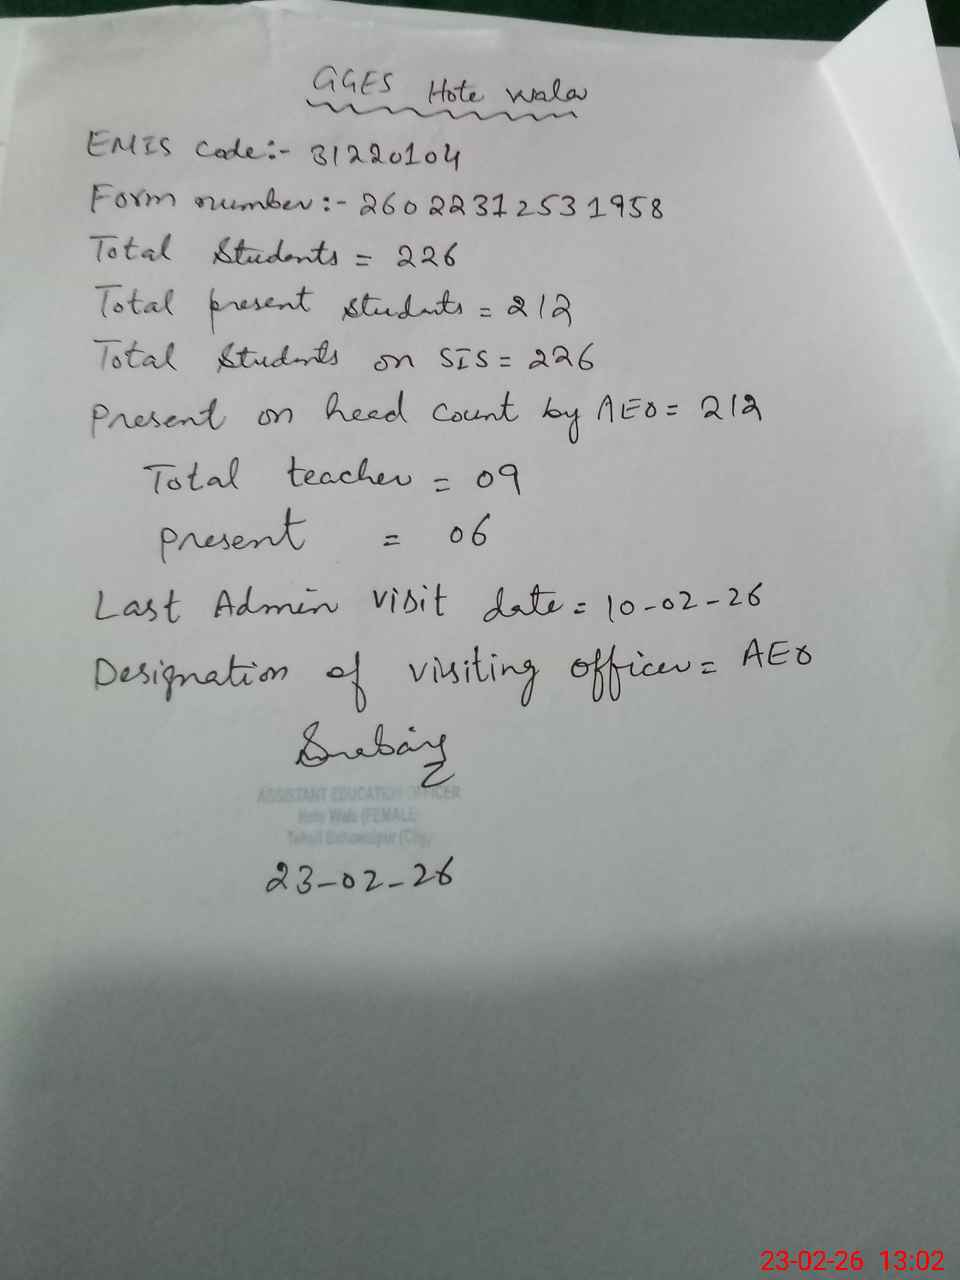 GGES Hote wala
EMIS Code:- 31220104
Form number:- 26022312531958
Total Students = 226
Total present students = 212
Total Students on SIS = 226
Present on head count by AEO = 212
Total teacher = 09
present = 06
Last Admin visit date = 10-02-26
Designation of visiting officer = AEO
ASSISTANT EDUCATION OFFICER
Hote Wala (FEMALE)
Tehsil Bahawalpur (City)
23-02-26
23-02-26 13:02